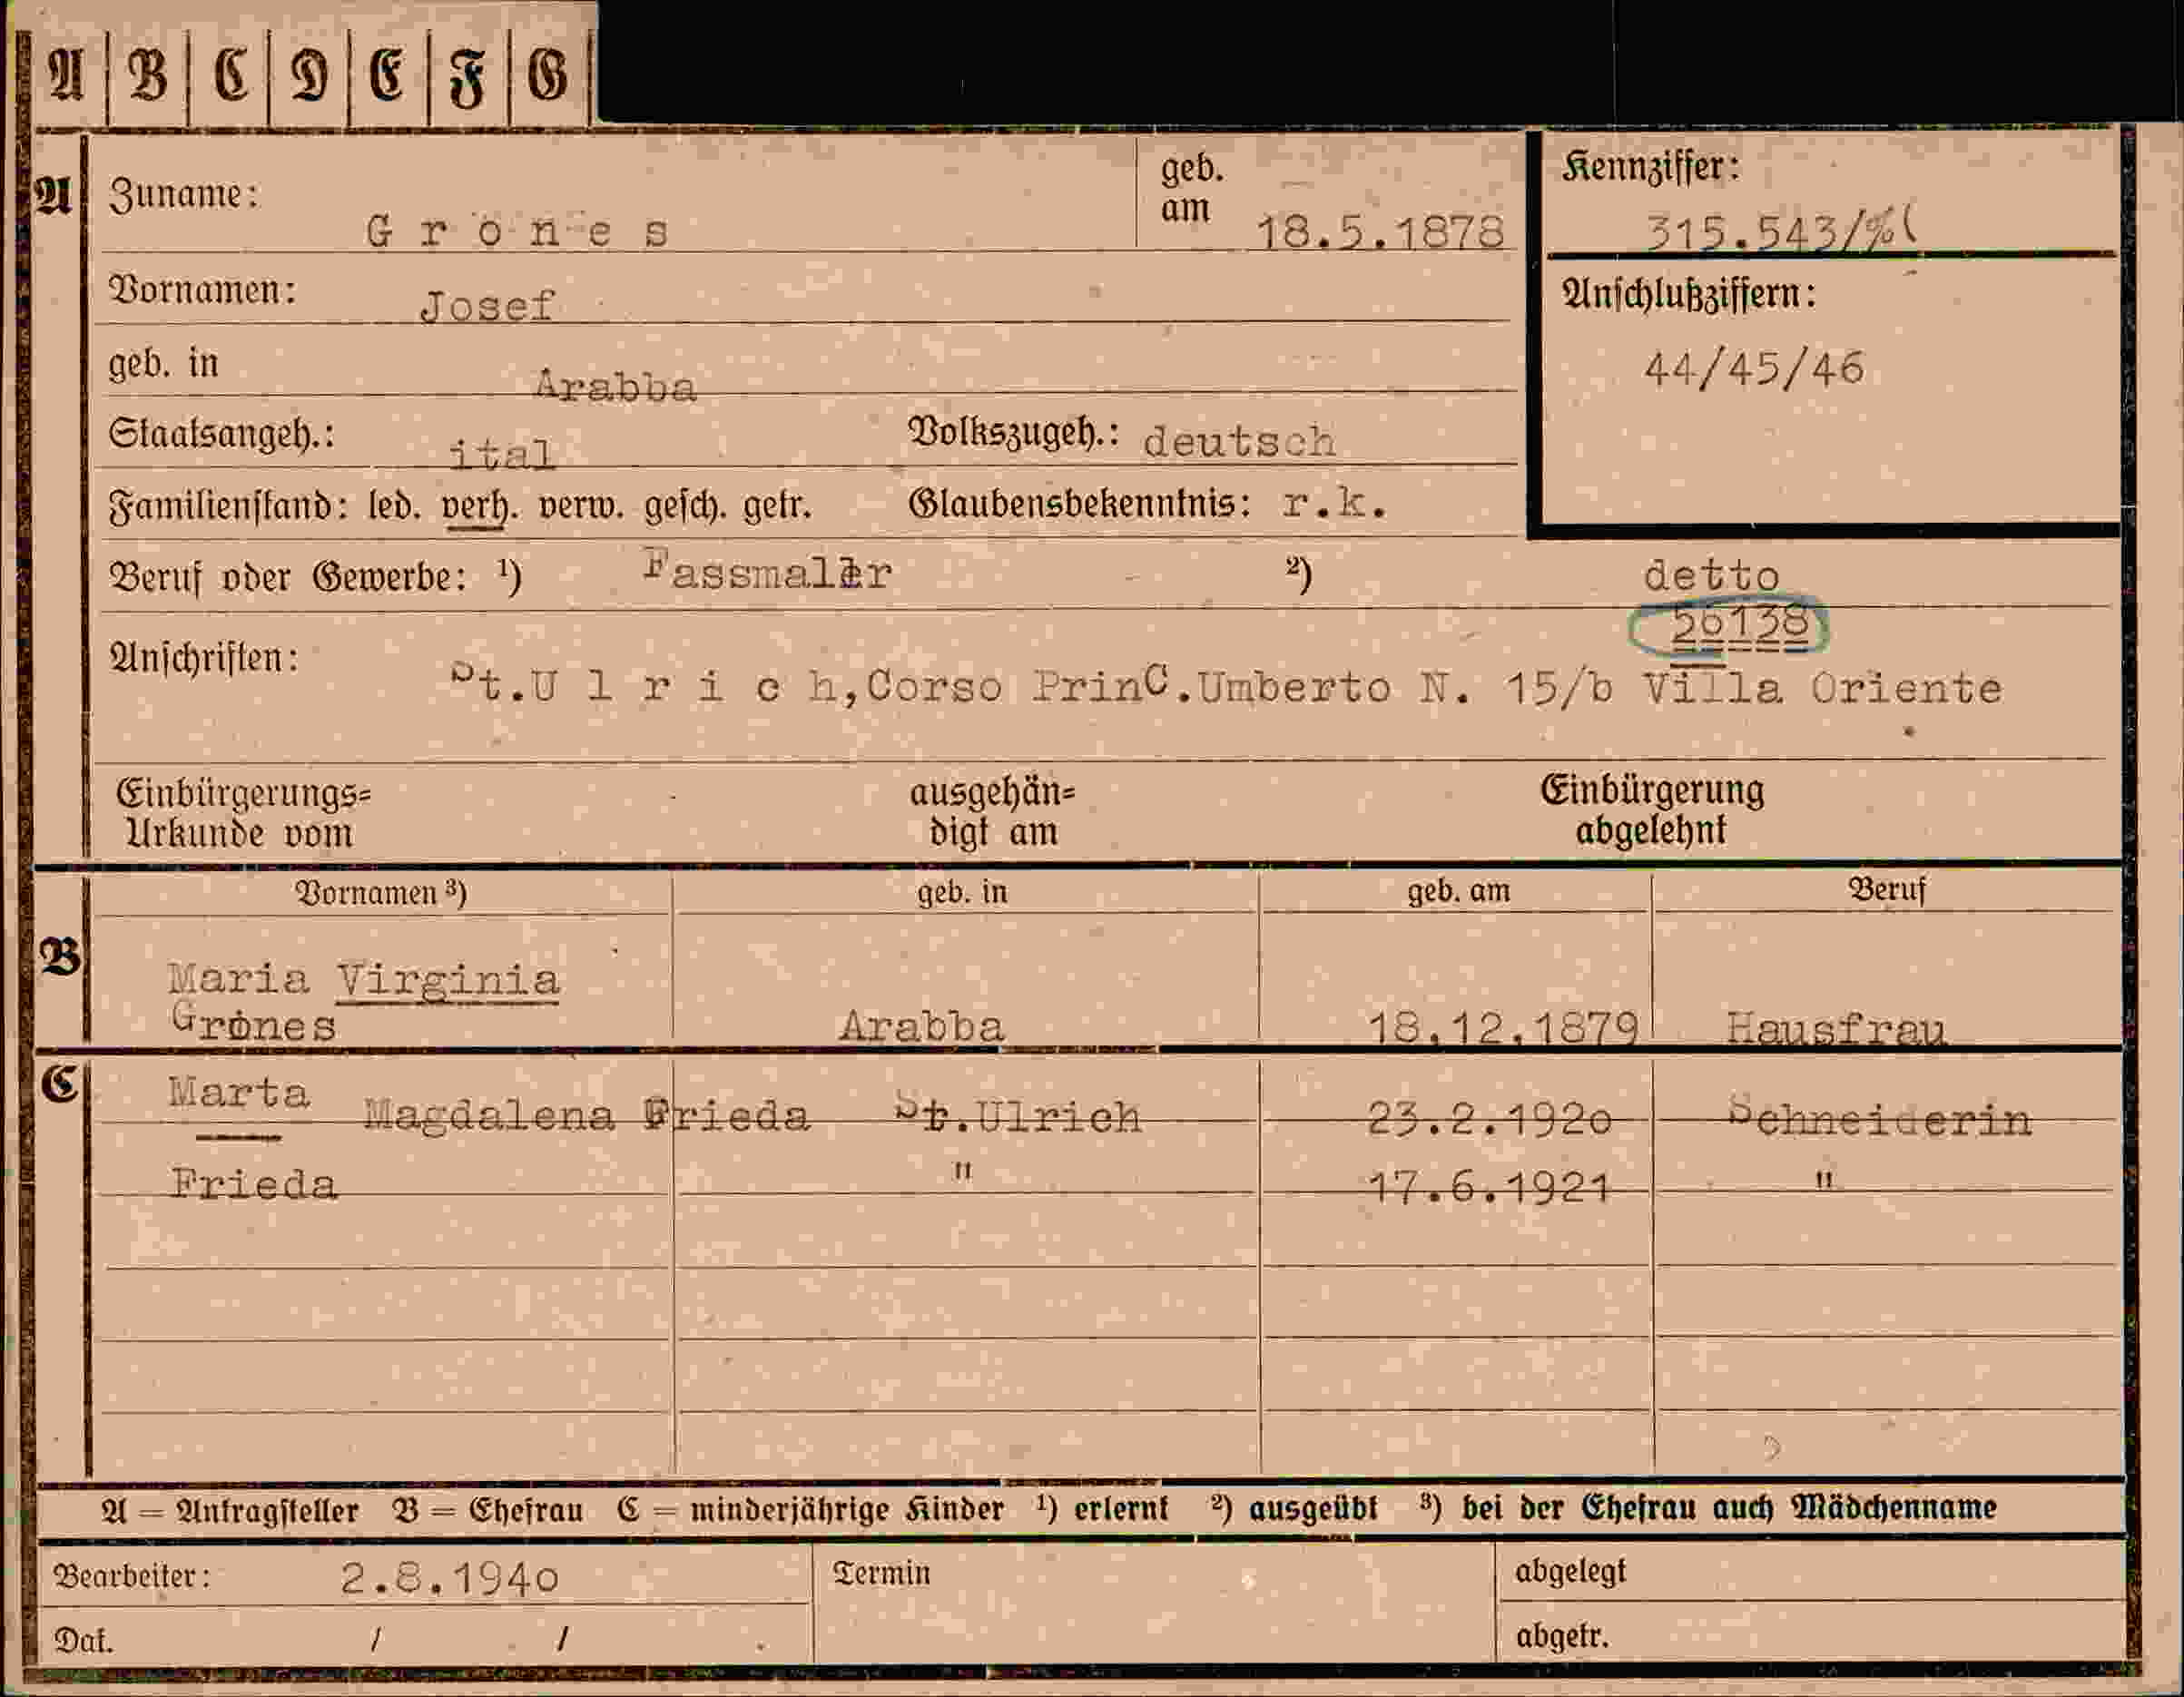 A B C D E F G
A Zuname: Grones geb. am 18.5.1878 Kennziffer: 315.543/%(
Vornamen: Josef Anschlußziffern:
geb. in Arabba 44/45/46
Staatsangeh.: ital Volkszugeh.: deutsch
Familienstand: led. verh. verw. gesch. getr. Glaubensbekenntnis: r.k.
Beruf oder Gewerbe: ¹) Fassmaler ²) detto
56138
Anschriften: St.Ulrich,Corso PrinC.Umberto N. 15/b Villa Oriente
Einbürgerungs= ausgehän= Einbürgerung
Urkunde vom digt am abgelehnt
Vornamen ³) geb. in geb. am Beruf
B Maria Virginia
Grones Arabba 18.12.1879 Hausfrau
C Marta Magdalena Frieda St.Ulrich 23.2.1920 Schneiderin
Frieda " 17.6.1921 "
A = Antragsteller B = Ehefrau C = minderjährige Kinder ¹) erlernt ²) ausgeübt ³) bei der Ehefrau auch Mädchenname
Bearbeiter: 2.8.1940 Termin abgelegt
Dat. / / abgetr.